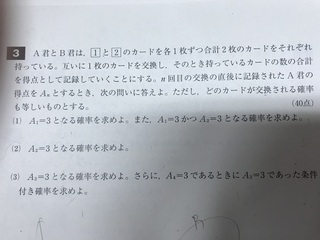 3 A君とB君は，1と2のカードを各1枚ずつ合計2枚のカードをそれぞれ
持っている。互いに1枚のカードを交換し，そのとき持っているカードの数の合計
を得点として記録していくことにする。n回目の交換の直後に記録されたA君の
得点をAnとするとき，次の問いに答えよ。ただし，どのカードが交換される確率
も等しいものとする。 (40点)
(1) A₁=3となる確率を求めよ。また，A₁=3かつA₂=3となる確率を求めよ。
(2) A₂=3となる確率を求めよ。
(3) A₃=3となる確率を求めよ。さらに，A₄=3であるときにA₃=3であった条件
付き確率を求めよ。